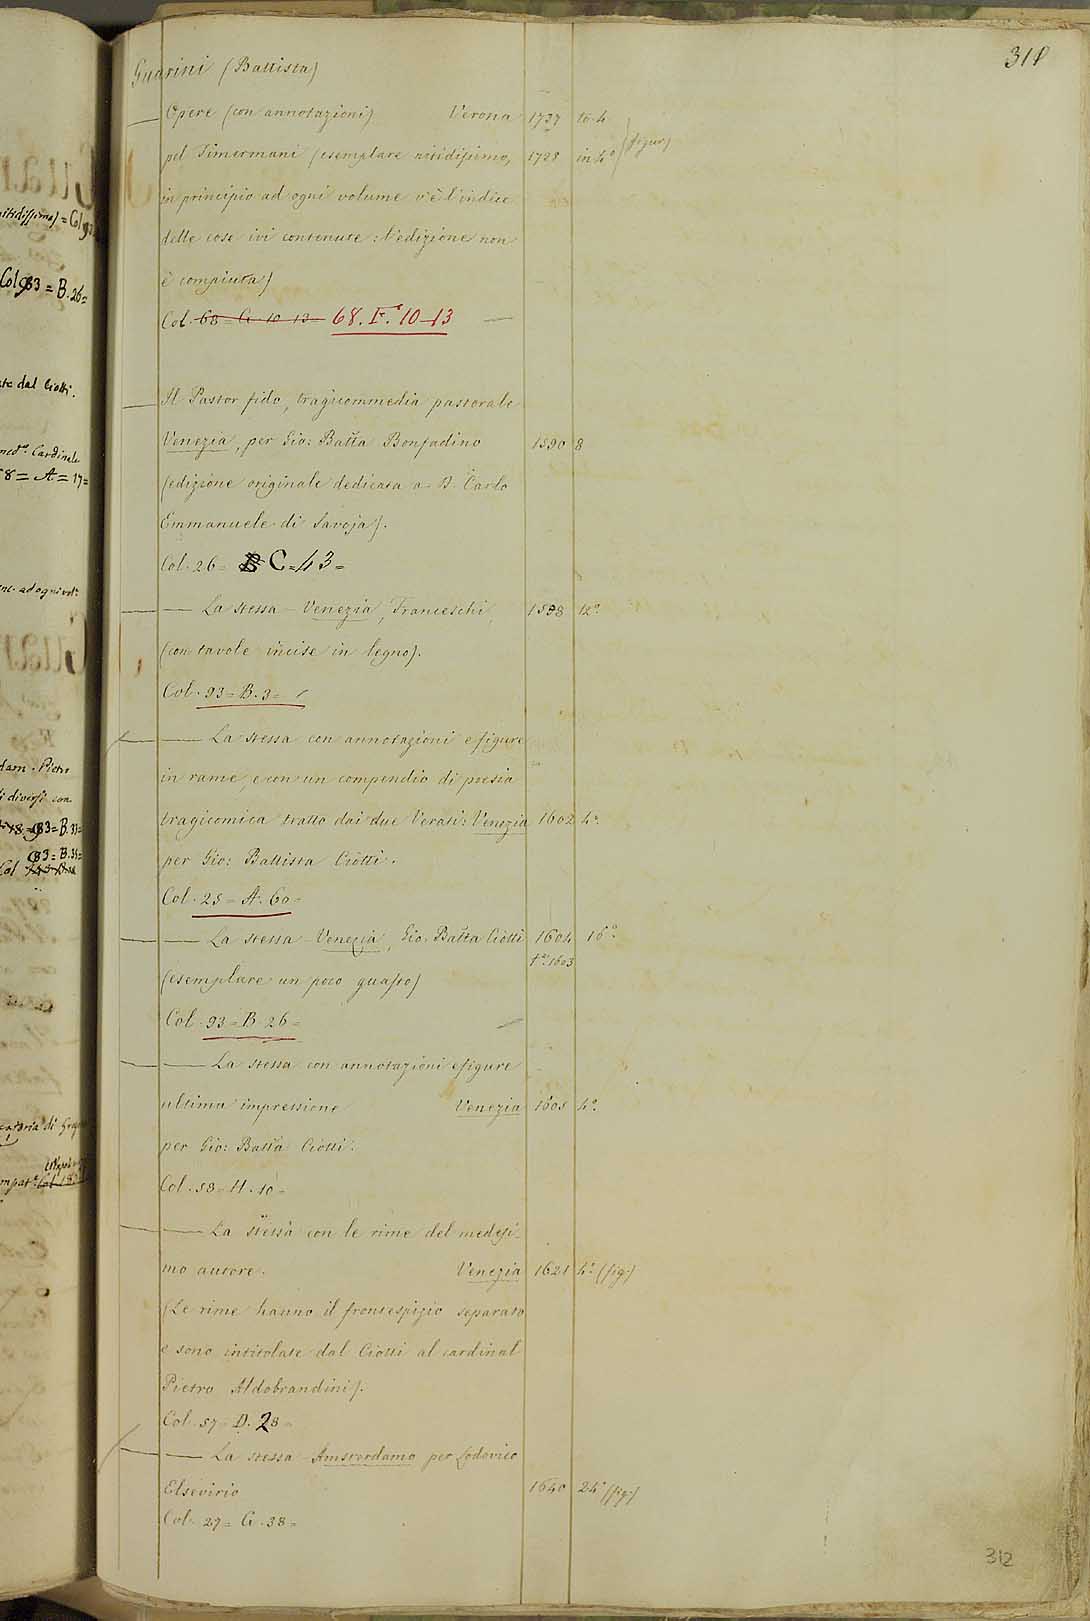 311
Guarini (Battista)
Opere (con annotazioni) Verona 1737 to. 4
pel Tumermani (esemplare nitidissimo, 1738 in 4° (figur)
in principio ad ogni volume v'è l'indice
delle cose ivi contenute: l'edizione non
è compiuta)
Col. 68 = G. 10-13 = 68. F. 10-13
Il Pastor fido, tragicommedia pastorale
Venezia, per Gio: Batta Bonfadino 1590 8
(edizione originale dedicata a D. Carlo
Emmanuele di Savoja).
Col. 26 = B C = 43 =
La stessa – Venezia, Franceschi, 1598 12°
(con tavole incise in legno).
Col. 93 = B. 3 =
La stessa con annotazioni e figure
in rame, e con un compendio di poesia
tragicomica tratto dai due Verati: Venezia 1602 4°
per Gio: Battista Ciotti.
Col. 25 = A. 60 =
La stessa – Venezia, Gio. Batta Ciotti 1604 16°
1603
(esemplare un poco guasto)
Col. 93 = B 26 =
La stessa con annotazioni e figure
ultima impressione Venezia 1605 4°
per Gio: Batta Ciotti.
Col. 58 = H. 10 =
La stessa con le rime del medesi-
mo autore. Venezia 1621 4° (fig.)
(Le rime hanno il frontespizio separato
e sono intitolate dal Ciotti al cardinal
Pietro Aldobrandini).
Col. 57 = D. 28 =
La stessa Amsterdamo per Lodovico
Elsevirio 1640 24° (fig.)
Col. 27 = G. 38 =
312